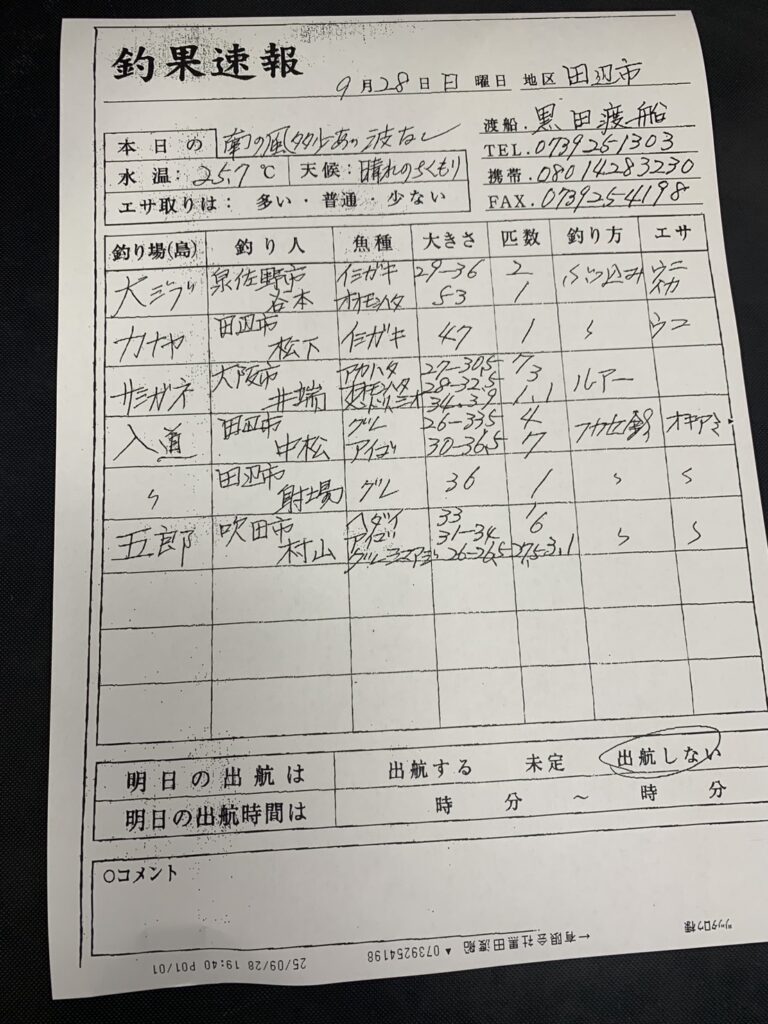 釣果速報
9月28日 日 曜日 地区 田辺市
渡船. 黒田渡船
本日の 南の風 波なし
TEL. 0739251303
水温: 25.7 ℃ 天候: 晴れのちくもり
携帯. 08014283230
エサ取りは: 多い・普通・少ない
FAX. 0739254198
釣り場(島) 釣り人 魚種 大きさ 匹数 釣り方 エサ
泉佐野市 イシガキ 29-36 2 ぶっ込み ウニ
谷本 オオモンハタ 53 1 イカ
カナヤ 田辺市 松下 イシガキ 47 1 〃 ウニ
サシガネ 大阪市 井端 アカハタ 27-30.5 7 ルアー
オオモンハタ 28-32.5 3
34.39 1.1
入道 田辺市 中松 グレ 26-33.5 4 フカセ釣 オキアミ
アイゴ 30-36.5 7
〃 田辺市 射場 グレ 36 1 〃 〃
五郎 吹田市 村山 ヘダイ 33 1 〃 〃
アイゴ 31-34 6
グレ 26-26.5-27.5-3.1
明日の出航は 出航する 未定 出航しない
明日の出航時間は 時 分 ~ 時 分
○コメント
25/09/28 19:40 P01/01
←有限会社黒田渡船 ▲ 0739254198